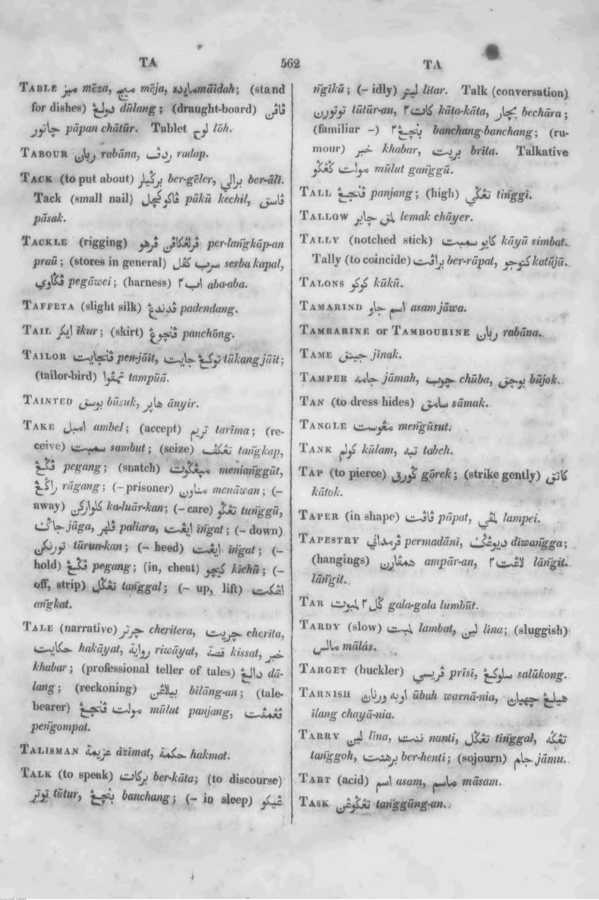 TA
562
TA
TABLE ميز mēza, ميج mēja, مايده māidah; (stand
for dishes) دولڠ dūlang; (draught-board) ڤاڤن
چاتور pāpan chātūr. Tablet لوح lōh.
TABOUR ربان rabāna, ردف radap.
TACK (to put about) برڬيلر ber-gēler, برالي ber-āli.
Tack (small nail) ڤاكو كچيل pākū kechil, ڤاسق
pāsak.
TACKLE (rigging) ڤرلڠكاڤن ڤرهو per-langkāp-an
praū; (stores in general) سرب كڤل serba kapal,
ڤڬاوي pegāwei; (harness) اب٢ aba-aba.
TAFFETA (slight silk) ڤدندڠ padendang.
TAIL ايكر īkur; (skirt) ڤنچوڠ panchōng.
TAILOR ڤنجايت pen-jāit, توكڠ جايت tūkang jāit;
(tailor-bird) تمڤوا tampūā.
TAINTED بوسق būsuk, هاير ānyir.
TAKE امبل ambel; (accept) تريم tarīma; (re-
ceive) سمبت sambut; (seize) تڠكڤ tangkap,
ڤڬڠ pegang; (snatch) مپنڠڬوت menianggūt,
راڬڠ rāgang; (– prisoner) مناون menāwan; (–
away) كلوارکن ka-luār-kan; (– care) تڠڬو tunggū,
جاݢ jāga, ڤلهر paliara, ايڠت ingat; (– down)
تورنكن tūrun-kan; (– heed) ايڠت ingat; (–
hold) ڤڬڠ pegang; (in, cheat) كيچو kichū; (–
off, strip) تڠڬل tanggal; (– up, lift) اڠكت
angkat.
TALE (narrative) چرتر cheritera, چريت cherita,
حكايت hakāyat, رواية riwāyat, قصة kissat, خبر
khabar; (professional teller of tales) دالڠ dā-
lang; (reckoning) بيلاڠن bilāng-an; (tale-
bearer) مولت ڤنجڠ mūlut panjang, ڤڠمڤت
pengompat.
TALISMAN عزيمة āzimat, حكمة hakmat.
TALK (to speak) بركات ber-kāta; (to discourse)
توتر tūtur, بنچڠ banchang; (– in sleep) ڠيڬو
ngikū; (– idly) ليتر litar. Talk (conversation)
توتورن tūtūr-an, كات٢ kāta-kāta, بچار bechāra;
(familiar –) بنچڠ٢ banchang-banchang; (ru-
mour) خبر khabar, بريت brita. Talkative
مولت ڬڠڬو mūlut ganggū.
TALL ڤنجڠ panjang; (high) تڠڬي tinggi.
TALLOW لمق چاير lemak chāyer.
TALLY (notched stick) كايو سمبت kāyū simbat.
Tally (to coincide) براڤت ber-rāpat, كتوجو katūjū.
TALONS كوكو kūkū.
TAMARIND اسم جاو asam jāwa.
TAMBARINE or TAMBOURINE ربان rabāna.
TAME جينق jīnak.
TAMPER جامه jāmah, چوب chūba, بوجق būjok.
TAN (to dress hides) سامق sāmak.
TANGLE مڠوست mengūsut.
TANK كولم kūlam, تبه tabeh.
TAP (to pierce) ڬورق gōrek; (strike gently) كاتق
kātok.
TAPER (in shape) ڤاڤت pāpat, لمڤي lampei.
TAPESTRY ڤرمداني permadāni, ديوڠݢ diwangga;
(hangings) همڤارن ampār-an, لاڠت٢ lāngit-
lāngit.
TAR ڬل٢ لمبوت gala-gala lumbūt.
TARDY (slow) لمبت lambat, لين lina; (sluggish)
مالس mālas.
TARGET (buckler) ڤريسي prisi, سلوكڠ salūkong.
TARNISH اوبه ورنان ūbah warnā-nia, هيلڠ چهيان
ilang chayā-nia.
TARRY لين līna, ننت nanti, تڠڬل tinggal, تڠڬه
tanggoh, برهنت ber-henti; (sojourn) جامو jāmu.
TART (acid) اسم asam, ماسم māsam.
TASK تڠڬوڠن tanggūng-an.